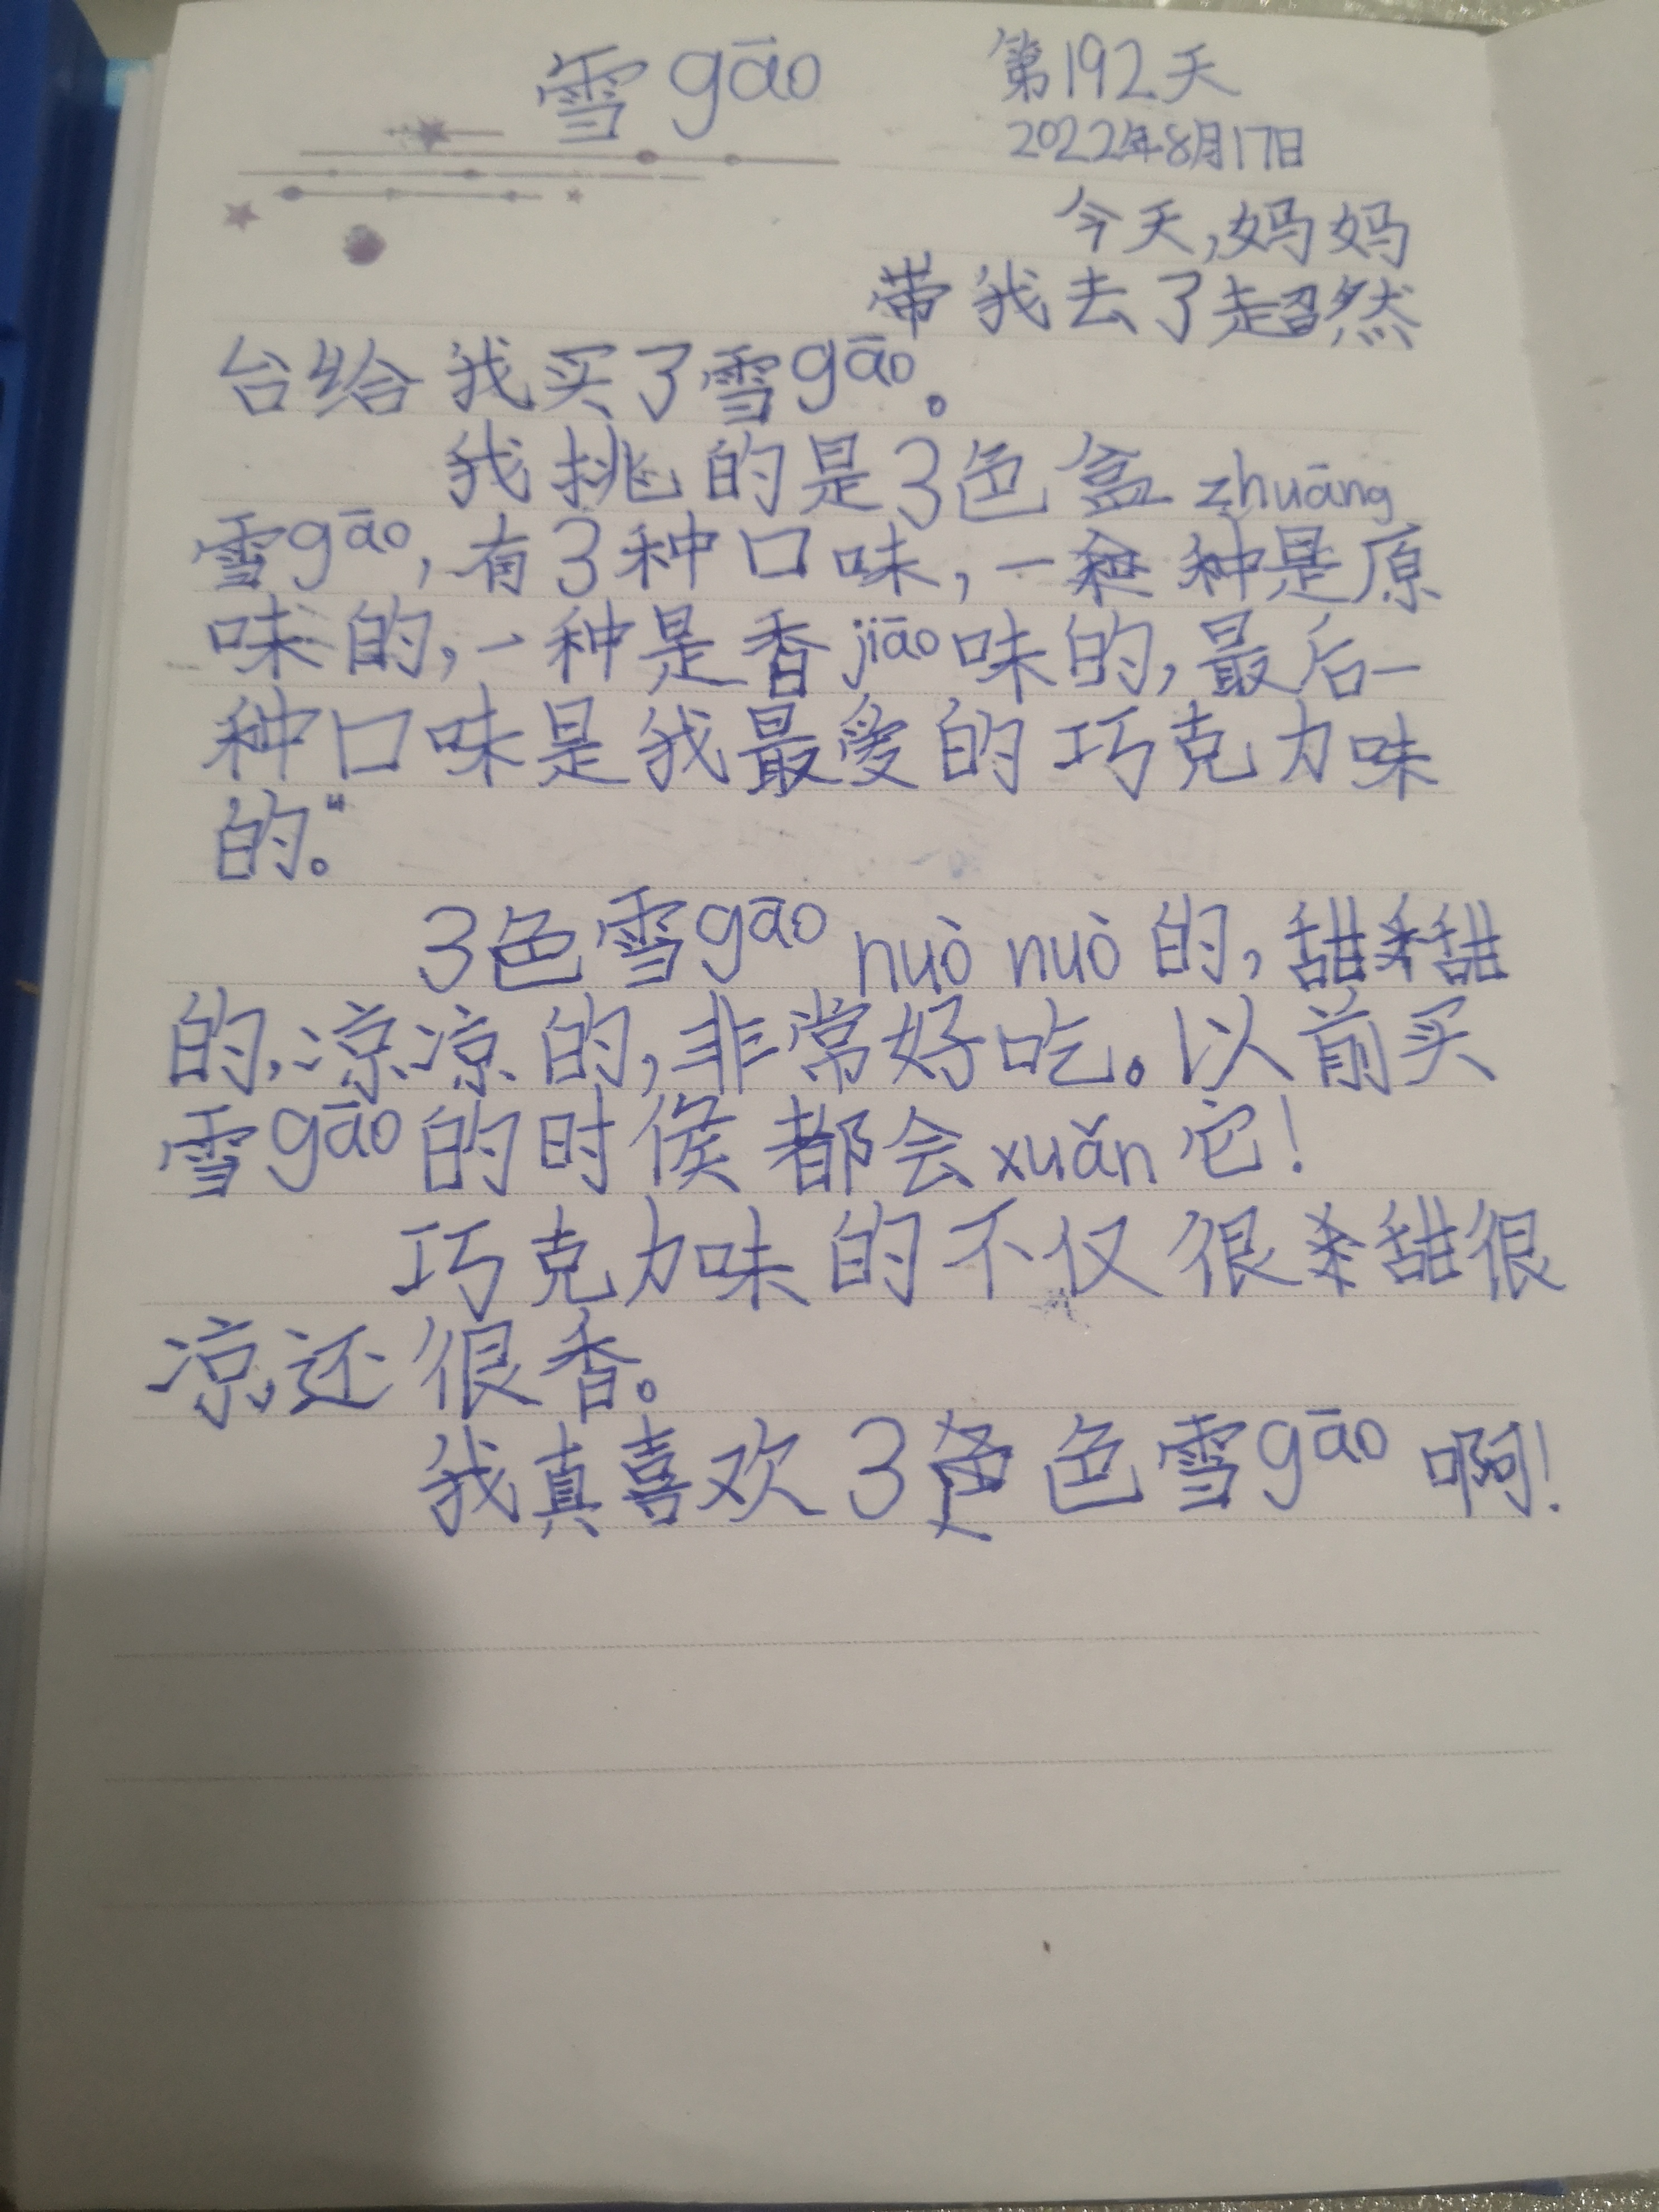 雪gāo
第192天
2022年8月17日
今天,妈妈
带我去了超然
台给我买了雪gāo。
我挑的是3色盒zhuāng
雪gāo,有3种口味,一种是原
味的,一种是香jiāo味的,最后一
种口味是我最爱的巧克力味
的。"
3色雪gāo nuò nuò的,甜甜
的,凉凉的,非常好吃。以前买
雪gāo的时候都会xuǎn它!
巧克力味的不仅很甜很
凉,还很香。
我真喜欢3色雪gāo啊!